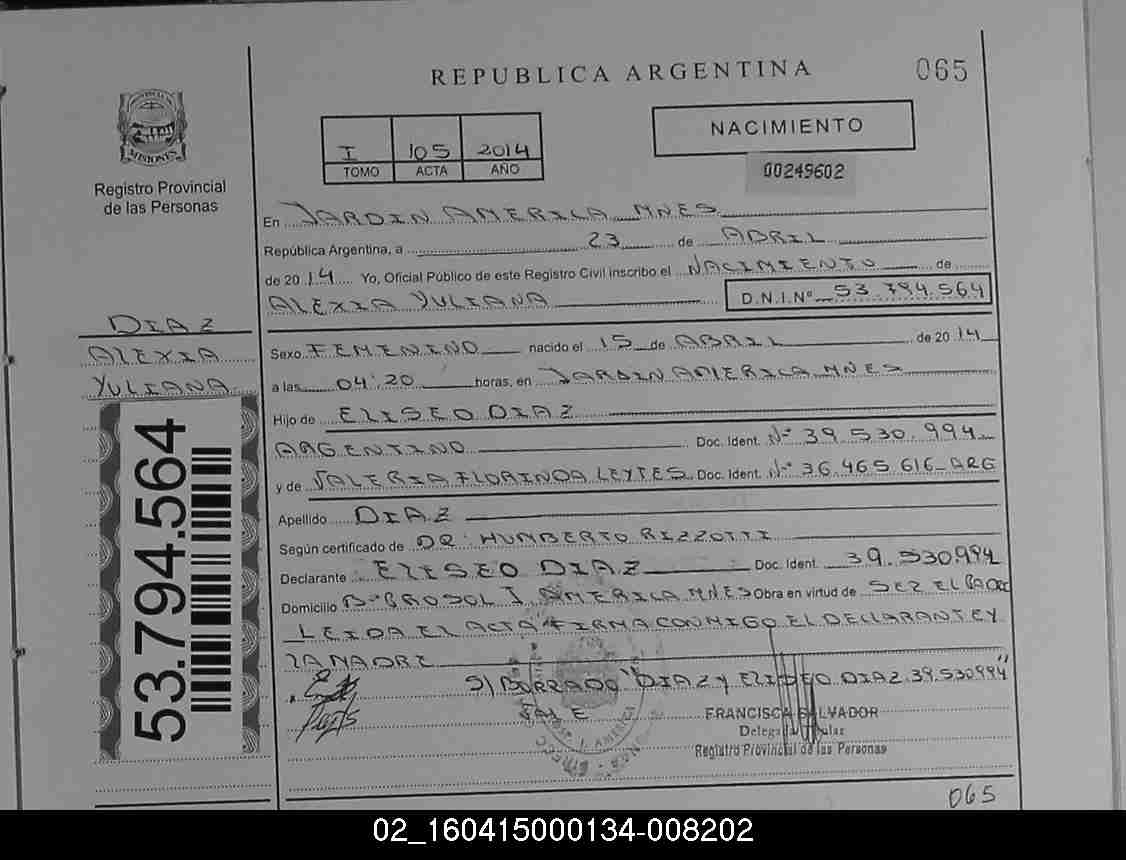 REPUBLICA ARGENTINA
065
PROVINCIA DE
MISIONES
Registro Provincial
de las Personas
I 105 2014
TOMO ACTA AÑO
NACIMIENTO
00249602
En JARDIN AMERICA MNES
República Argentina, a 23 de ABRIL
de 2014 Yo, Oficial Público de este Registro Civil inscribo el NACIMIENTO de
ALEXIA YULIANA D.N.I.Nº 53.794.564
DIAZ
ALEXIA
YULIANA
53.794.564
Sexo FEMENINO nacido el 15 de ABRIL de 2014
a las 04:20 horas, en JARDIN AMERICA MNES
Hijo de ELISEO DIAZ
ARGENTINO Doc. Ident. Nº 39.530.994
y de VALERIA FLORINDA LEYTES Doc. Ident. Nº 36.465.616 ARG
Apellido DIAZ
Según certificado de DR. HUMBERTO RIZZOTTI
Declarante ELISEO DIAZ Doc. Ident. 39.530.994
Domicilio Bº BROSOL I AMERICA MNES Obra en virtud de SER EL PADRE
LEIDA EL ACTA FIRMA CONMIGO EL DECLARANTE Y
LA MADRE
S/ BORRADO "DIAZ Y ELISEO DIAZ 39.530.994"
VALE
FRANCISCA SALVADOR
Delegada Titular
Registro Provincial de las Personas
065
02_160415000134-008202